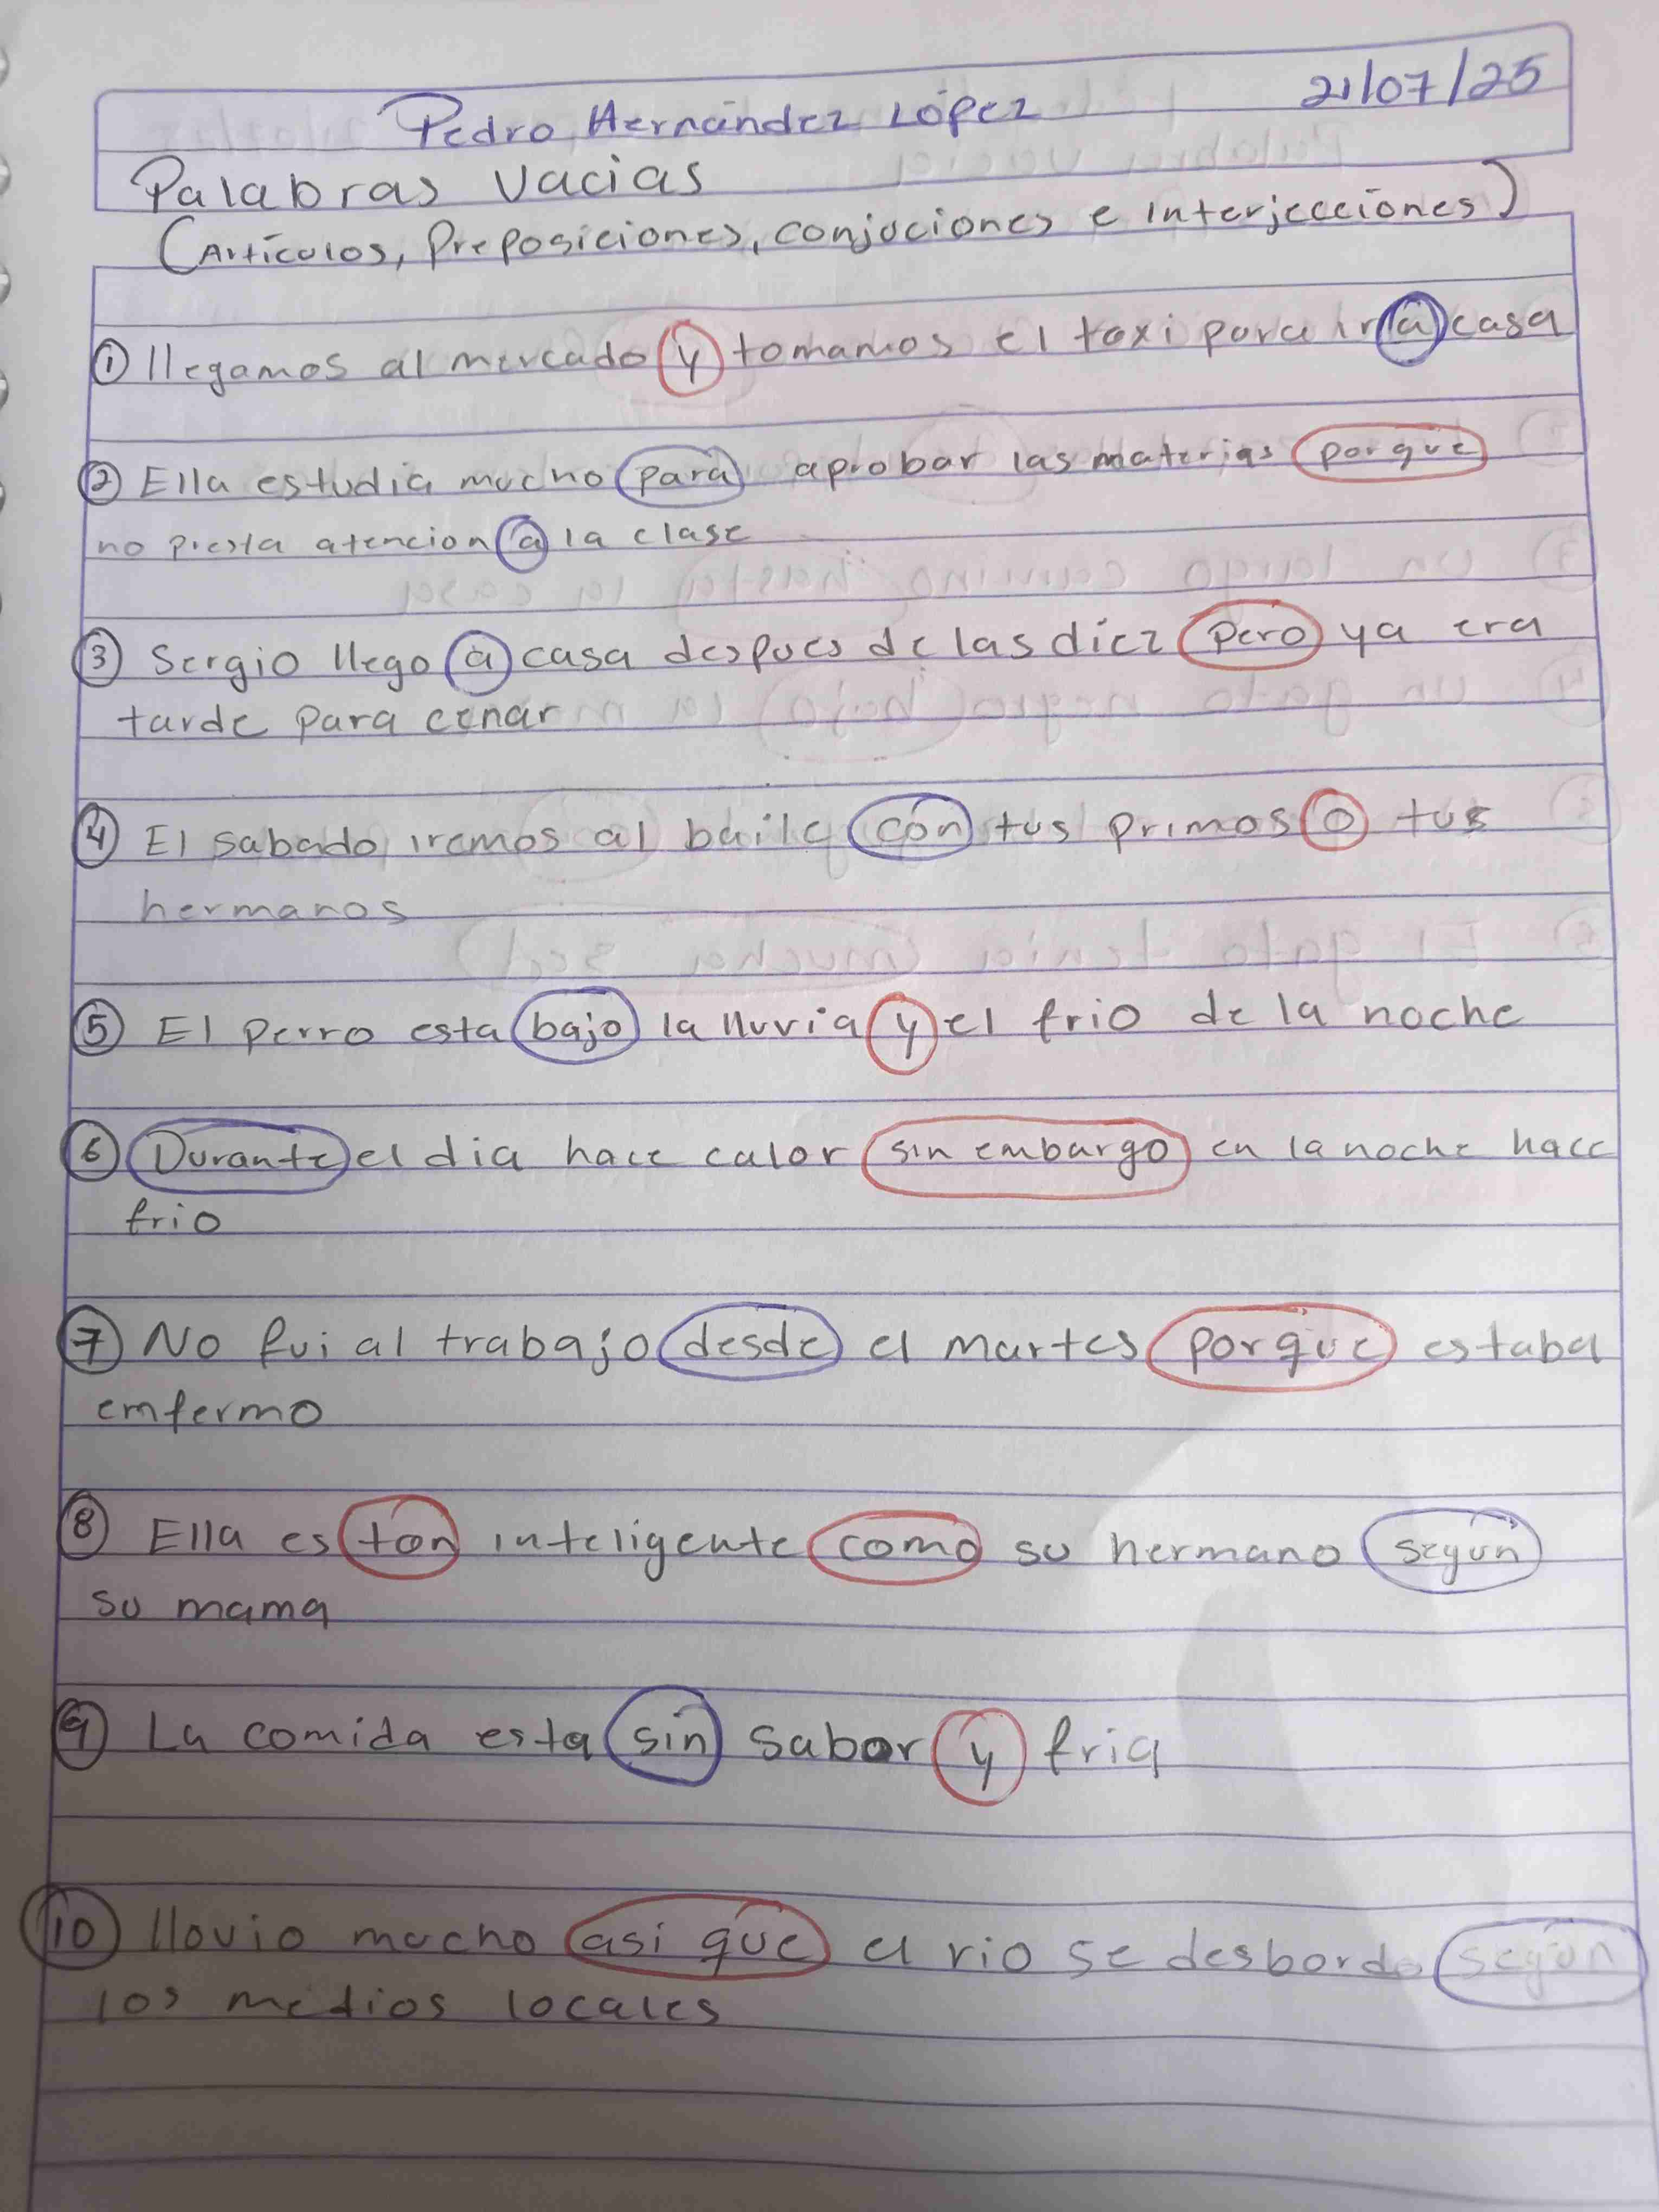 Pedro Hernández López 21/07/25
Palabras vacias
(Artículos, Preposiciones, conjuciones e interjecciones)
① llegamos al mercado y tomamos el taxi para ir a casa
② Ella estudia mucho para aprobar las materias porque
no presta atencion a la clase
③ Sergio llego a casa despues de las diez pero ya era
tarde para cenar
④ El sabado iremos al baile con tus primos o tus
hermanos
⑤ El perro esta bajo la lluvia y el frio de la noche
⑥ Durante el dia hace calor sin embargo en la noche hace
frio
⑦ No fui al trabajo desde el martes porque estaba
emfermo
⑧ Ella es tan inteligente como su hermano según
su mama
⑨ La comida esta sin sabor y fria
⑩ llovio mucho asi que el rio se desbordo según
los medios locales